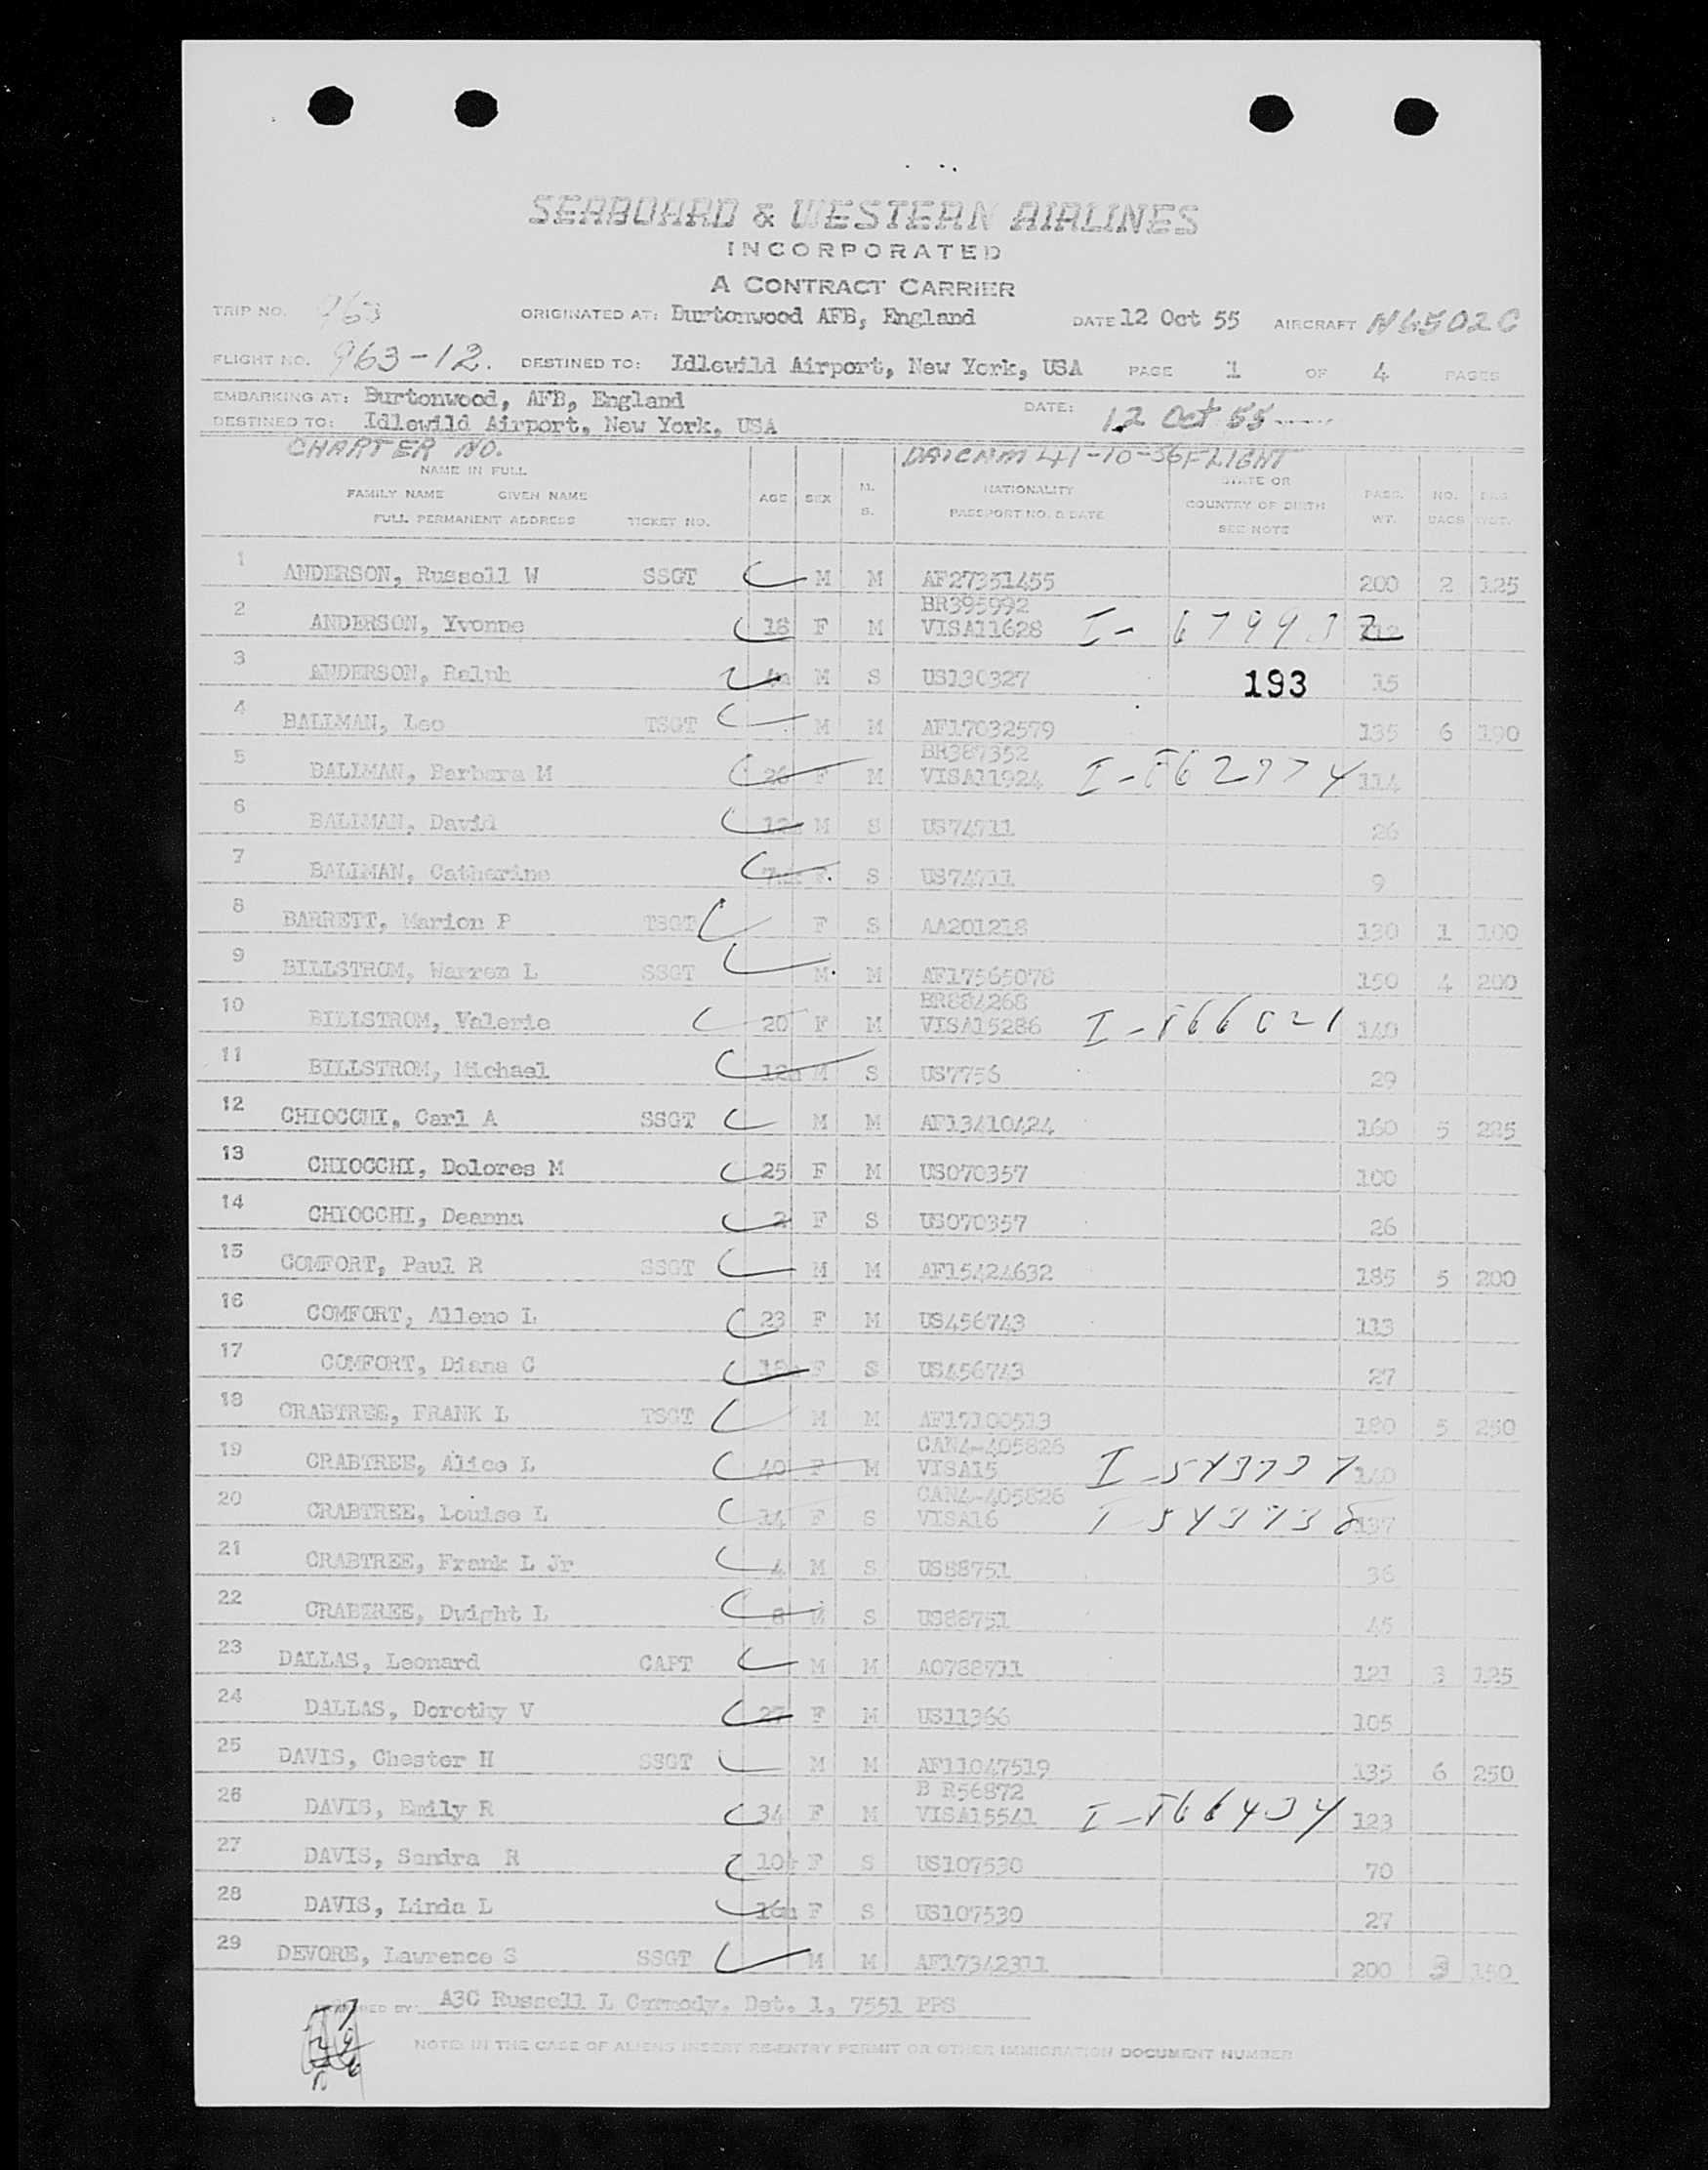 SEABOARD & WESTERN AIRLINES
INCORPORATED
A CONTRACT CARRIER
TRIP NO. 963 ORIGINATED AT: Burtonwood AFB, England DATE 12 Oct 55 AIRCRAFT N6502C
FLIGHT NO. 963-12. DESTINED TO: Idlewild Airport, New York, USA PAGE 1 OF 4 PAGES
EMBARKING AT: Burtonwood, AFB, England DATE: 12 Oct 55
DESTINED TO: Idlewild Airport, New York, USA
CHARTER NO. 41-10-56 FLIGHT
NAME IN FULL
FAMILY NAME GIVEN NAME AGE SEX M. S. NATIONALITY PASSPORT NO. & DATE STATE OR COUNTRY OF BIRTH SEE NOTE PASS. WT. NO. BAGS BAG WGT.
FULL PERMANENT ADDRESS TICKET NO.
1 ANDERSON, Russell W SSGT M M AF27351455 200 2 125
2 ANDERSON, Yvonne 18 F M BR395992 VISA11628 I-679937
3 ANDERSON, Ralph M S US130327 193 15
4 BALLMAN, Leo TSGT M M AF17032579 135 6 190
5 BALLMAN, Barbara M 26 F M BR387352 VISA11924 114
6 BALLMAN, David M S US74711 26
7 BALLMAN, Catharine S US74711 9
8 BARRETT, Marion P TSGT F S AA201218 130 1 100
9 BILLSTROM, Warren L SSGT M M AF17565078 150 4 200
10 BILLSTROM, Valerie 20 F M BR884268 VISA15286 I-866021 140
11 BILLSTROM, Michael 18m M S US7756 29
12 CHIOCCHI, Carl A SSGT M M AF13410424 160 5 225
13 CHIOCCHI, Dolores M 25 F M US070357 100
14 CHIOCCHI, Deanna 2 F S US070357 26
15 COMFORT, Paul R SSGT M M AF15424632 185 5 200
16 COMFORT, Allene L 23 F M US456743 113
17 COMFORT, Diana C F S US456743 27
18 CRABTREE, FRANK L TSGT M M AF17100513 180 5 250
19 CRABTREE, Alice L 40 F M CAN4-405826 VISA15 I-543737 140
20 CRABTREE, Louise L 14 F S CAN4-405826 VISA16 I 543738 137
21 CRABTREE, Frank L Jr 4 M S US88751 36
22 CRABTREE, Dwight L 8 M S US88751 45
23 DALLAS, Leonard CAPT M M AO788711 121 3 125
24 DALLAS, Dorothy V 27 F M US11366 105
25 DAVIS, Chester H SSGT M M AF11047519 135 6 250
26 DAVIS, Emily R 34 F M B R56872 VISA15541 I-866434 123
27 DAVIS, Sandra R 10 F S US107530 70
28 DAVIS, Linda L 16m F S US107530 27
29 DEVORE, Lawrence S SSGT M M AF17342311 200 3 150
PREPARED BY: A3C Russell L Carmody. Det. 1, 7551 PPS
NOTE: IN THE CASE OF ALIENS INSERT RE-ENTRY PERMIT OR OTHER IMMIGRATION DOCUMENT NUMBER